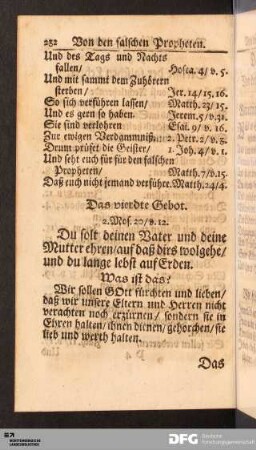 252 Von den falschen Propheten.
Und des Tags und Nachts
fallen/ Hosea. 4/ v. 5.
Und mit sammt dem Zuhörern
sterben/ Jer. 14/ 15, 16.
So sich verführen lassen/ Matth. 23/ 15.
Und es gern so haben. Jerem. 5/ v. 31.
Sie sind verlohren Esai. 9/ v. 16.
Zur ewigen Verdammniß. 2. Petr. 2/ v. 3.
Drum prüfet die Geister/ 1. Joh. 4/ v. 1.
Und seht euch für für den falschen
Propheten/ Matth. 7/ v. 15.
Daß euch nicht jemand verführe. Matth. 24/ 4.
Das vierdte Gebot.
2. Mos. 20/ v. 12.
Du solt deinen Vater und deine
Mutter ehren/ auf daß dirs wolgehe/
und du lange lebst auf Erden.
Was ist das?
Wir sollen GOtt fürchten und lieben/
daß wir unsere Eltern und Herren nicht
verachten noch erzürnen/ sondern sie in
Ehren halten/ ihnen dienen/ gehorchen/ sie
lieb und werth halten.
Das
DFG Deutsche
Forschungsgemeinschaft